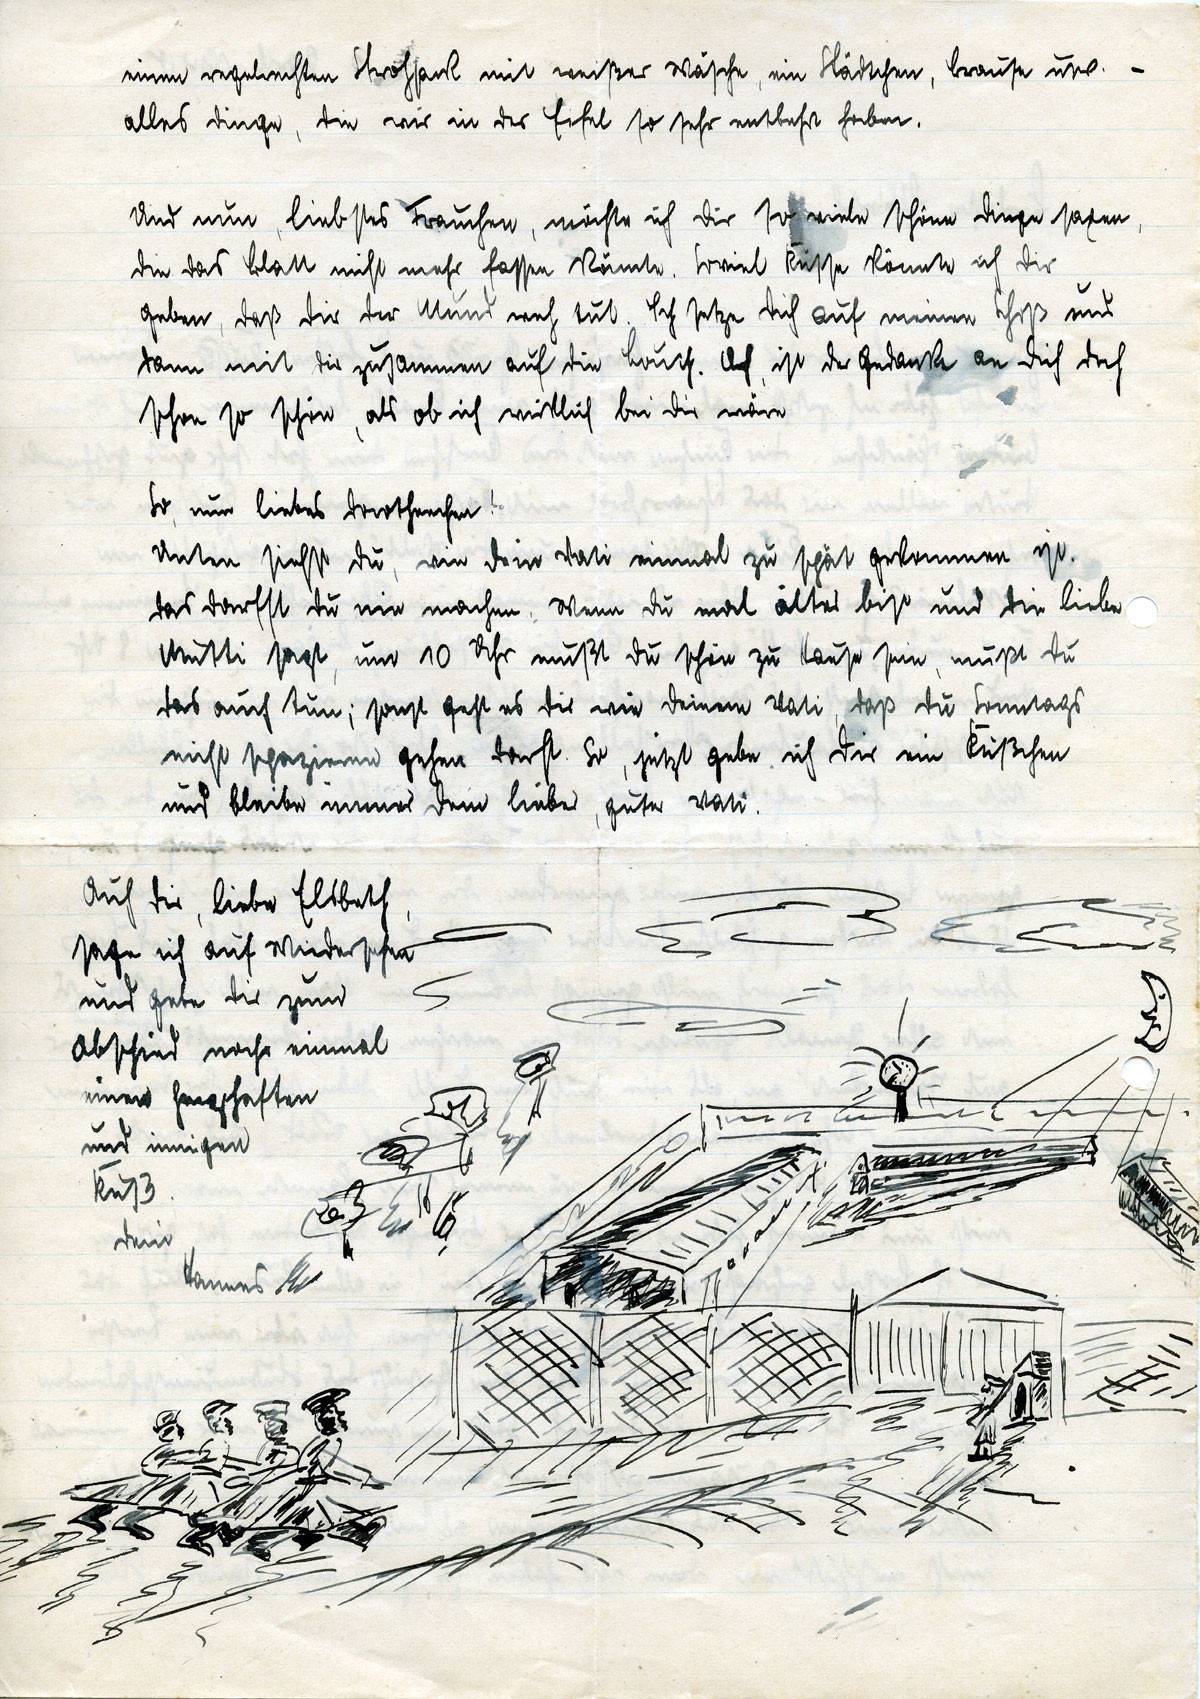 einen regelrechten Strohsack mit weißer Wäsche, ein Städtchen, Brause usw. –
alles Dinge, die wir in der Eifel so sehr entbehrt haben.
Und nun, liebstes Frauchen, möchte ich Dir so viele schöne Dinge sagen,
die das Blatt nicht mehr fassen könnte. Soviel Küsse könnte ich Dir
geben, daß Dir der Mund weh tut. Ich setze Dich auf meinen Schoß und
dann mit Dir zusammen auf die Couch. Ach, ist der Gedanke an Dich doch
schon so schön, als ob ich wirklich bei Dir wäre
So, nun liebes Dorotheechen!
Unten siehst Du, wie Dein Vati einmal zu spät gekommen ist.
Das darfst Du nie machen. Wenn Du mal älter bist und die liebe
Mutti sagt, um 10 Uhr mußt Du schön zu Hause sein, mußt Du
das auch tun; sonst geht es Dir wie Deinem Vati, daß Du Sonntags
nicht spazieren gehen darfst. So, jetzt gebe ich Dir ein Küßchen
und bleibe immer Dein lieber, guter Vati.
Auch Dir, liebe Elsbeth,
sage ich auf Wiedersehen
und gebe Dir zum
Abschied noch einmal
einen herzhaften
und innigen
Kuß.
Dein
Hannes